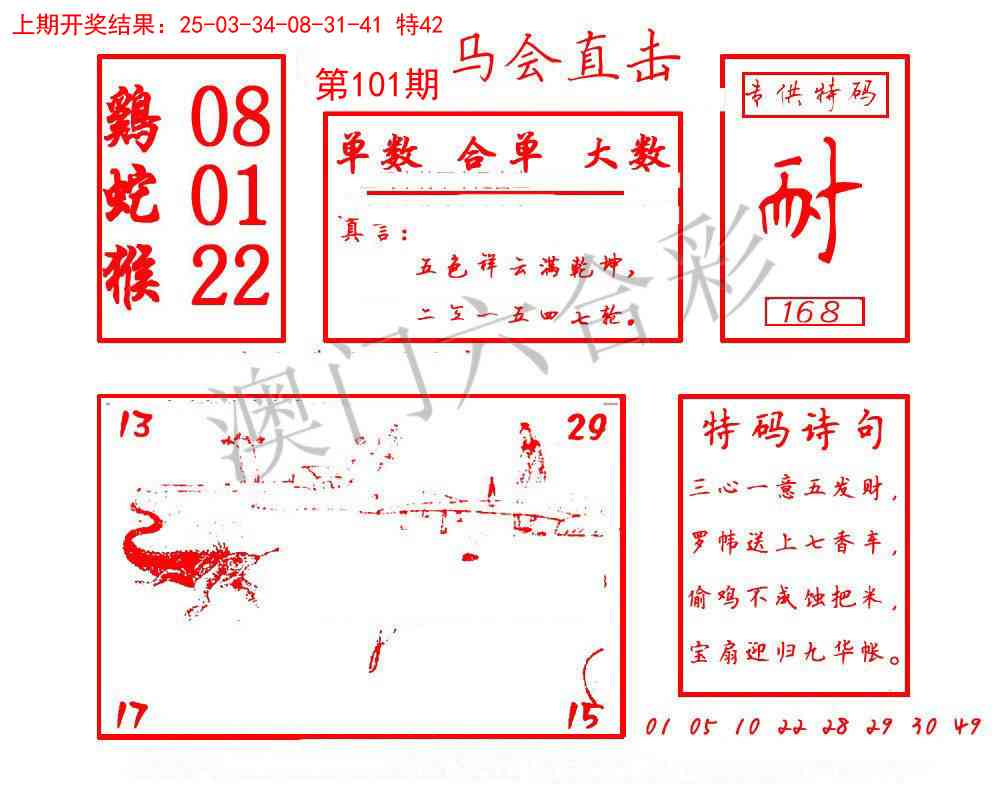 上期开奖结果：25-03-34-08-31-41 特42
马会直击
第101期
鷄 08
蛇 01
猴 22
单数 合单 大数
真言：
五色祥云满乾坤，
二三一五四七轮。
专供特码
耐
168
澳门六合彩
13 29
17 15
特码诗句
三心一意五发财，
罗帏送上七香车，
偷鸡不成蚀把米，
宝扇迎归九华帐。
01 05 10 22 28 29 30 49